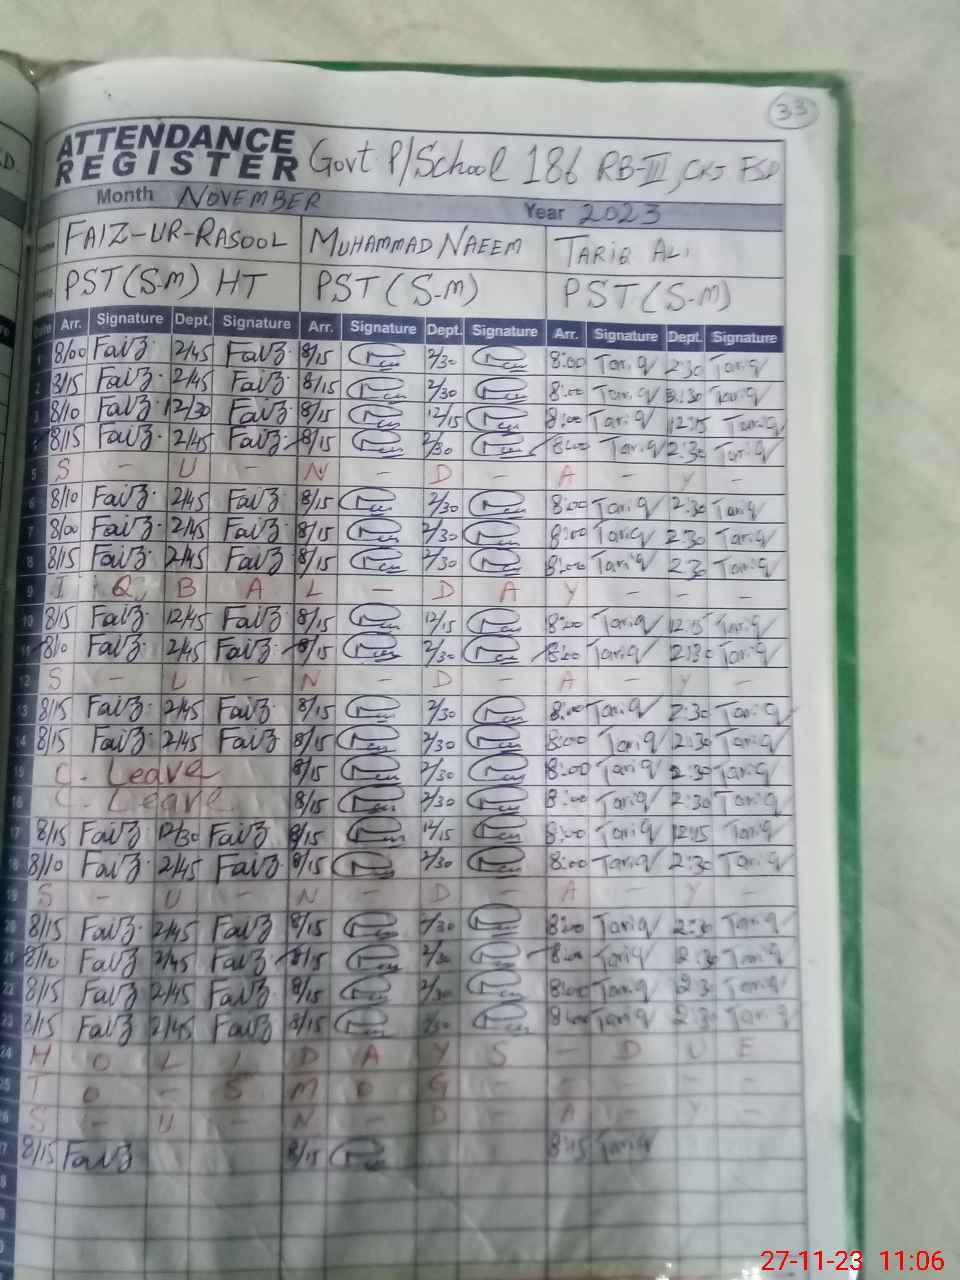 33
ATTENDANCE
REGISTER Govt P/School 186 RB-III, CKJ FSD
Month NOVEMBER Year 2023
FAIZ-UR-RASOOL MUHAMMAD NAEEM TARIQ ALI
PST(S-M) HT PST(S-M) PST(S-M)
Arr. Signature Dept. Signature Arr. Signature Dept. Signature Arr. Signature Dept. Signature
1 8/00 Faiz 2/45 Faiz 8/15 2/30 8:00 Tariq 2:30 Tariq
2 8/15 Faiz 2/45 Faiz 8/15 2/30 8:00 Tariq 2:30 Tariq
3 8/10 Faiz 12/30 Faiz 8/15 12/15 8:00 Tariq 12:15 Tariq
4 8/15 Faiz 2/45 Faiz 8/15 2/30 8:00 Tariq 2:30 Tariq
5 S - U - N - D - A - Y -
6 8/10 Faiz 2/45 Faiz 8/15 2/30 8:00 Tariq 2:30 Tariq
7 8/00 Faiz 2/45 Faiz 8/15 2/30 8:00 Tariq 2:30 Tariq
8 8/15 Faiz 2/45 Faiz 8/15 2/30 8:00 Tariq 2:30 Tariq
9 I Q B A L - D A Y - - -
10 8/15 Faiz 12/45 Faiz 8/15 12/15 8:00 Tariq 12:15 Tariq
11 8/10 Faiz 2/45 Faiz 8/15 2/30 8:00 Tariq 2:30 Tariq
12 S - U - N - D - A - Y -
13 8/15 Faiz 2/45 Faiz 8/15 2/30 8:00 Tariq 2:30 Tariq
14 8/15 Faiz 2/45 Faiz 8/15 2/30 8:00 Tariq 2:30 Tariq
15 C. Leave 8/15 2/30 8:00 Tariq 2:30 Tariq
16 C. Leave 8/15 2/30 8:00 Tariq 2:30 Tariq
17 8/15 Faiz 12/30 Faiz 8/15 12/15 8:00 Tariq 12:15 Tariq
18 8/10 Faiz 2/45 Faiz 8/15 2/30 8:00 Tariq 2:30 Tariq
19 S - U - N - D - A - Y -
20 8/15 Faiz 2/45 Faiz 8/15 2/30 8:00 Tariq 2:30 Tariq
21 8/10 Faiz 2/45 Faiz 8/15 2/30 8:00 Tariq 2:30 Tariq
22 8/15 Faiz 2/45 Faiz 8/15 2/30 8:00 Tariq 2:30 Tariq
23 8/15 Faiz 2/45 Faiz 8/15 2/30 8:00 Tariq 2:30 Tariq
24 H O L I D A Y S - D U E
25 T O - S M O G - - - - -
26 S - U - N - D - A - Y -
27 8/15 Faiz 8/15 8:15 Tariq
27-11-23 11:06